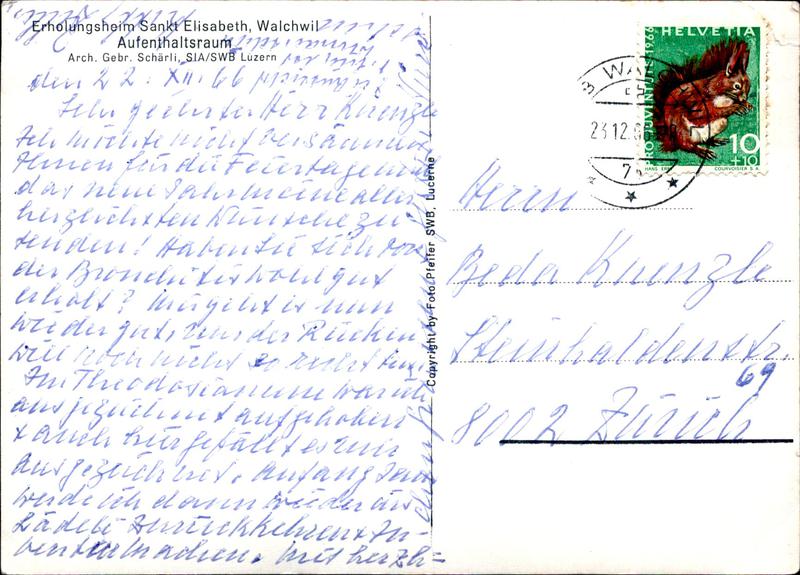 Erholungsheim Sankt Elisabeth, Walchwil
Aufenthaltsraum
Arch. Gebr. Schärli, SIA/SWB Luzern
den 22. XII. 66
Sehr geehrter Herr Kuenzle
Ich möchte nicht versäumen
Ihnen für die Feiertage und
das neue Jahr meine aller
herzlichsten Wünsche zu
senden! Haben Sie sich von
der Bronchitis wohl gut
erholt? Mir geht es nun
wieder gut, nur der Rücken
will noch nicht so recht
Im Theodosianum war ich
ausgezeichnet aufgehoben
+ auch hier gefällt es mir
ausgezeichnet. Anfang Jan.
werde ich dann wieder ins
Lädeli zurückkehren + In-
ventur machen. Mit herzli-
Copyright by Foto Pfeifer SWB, Lucerne
HELVETIA
PRO JUVENTUTE 1966
10
+10
COURVOISIER S.A.
23.12.66
Herrn
Beda Kuenzle
Steinhaldenstr.
69
8002 Zürich